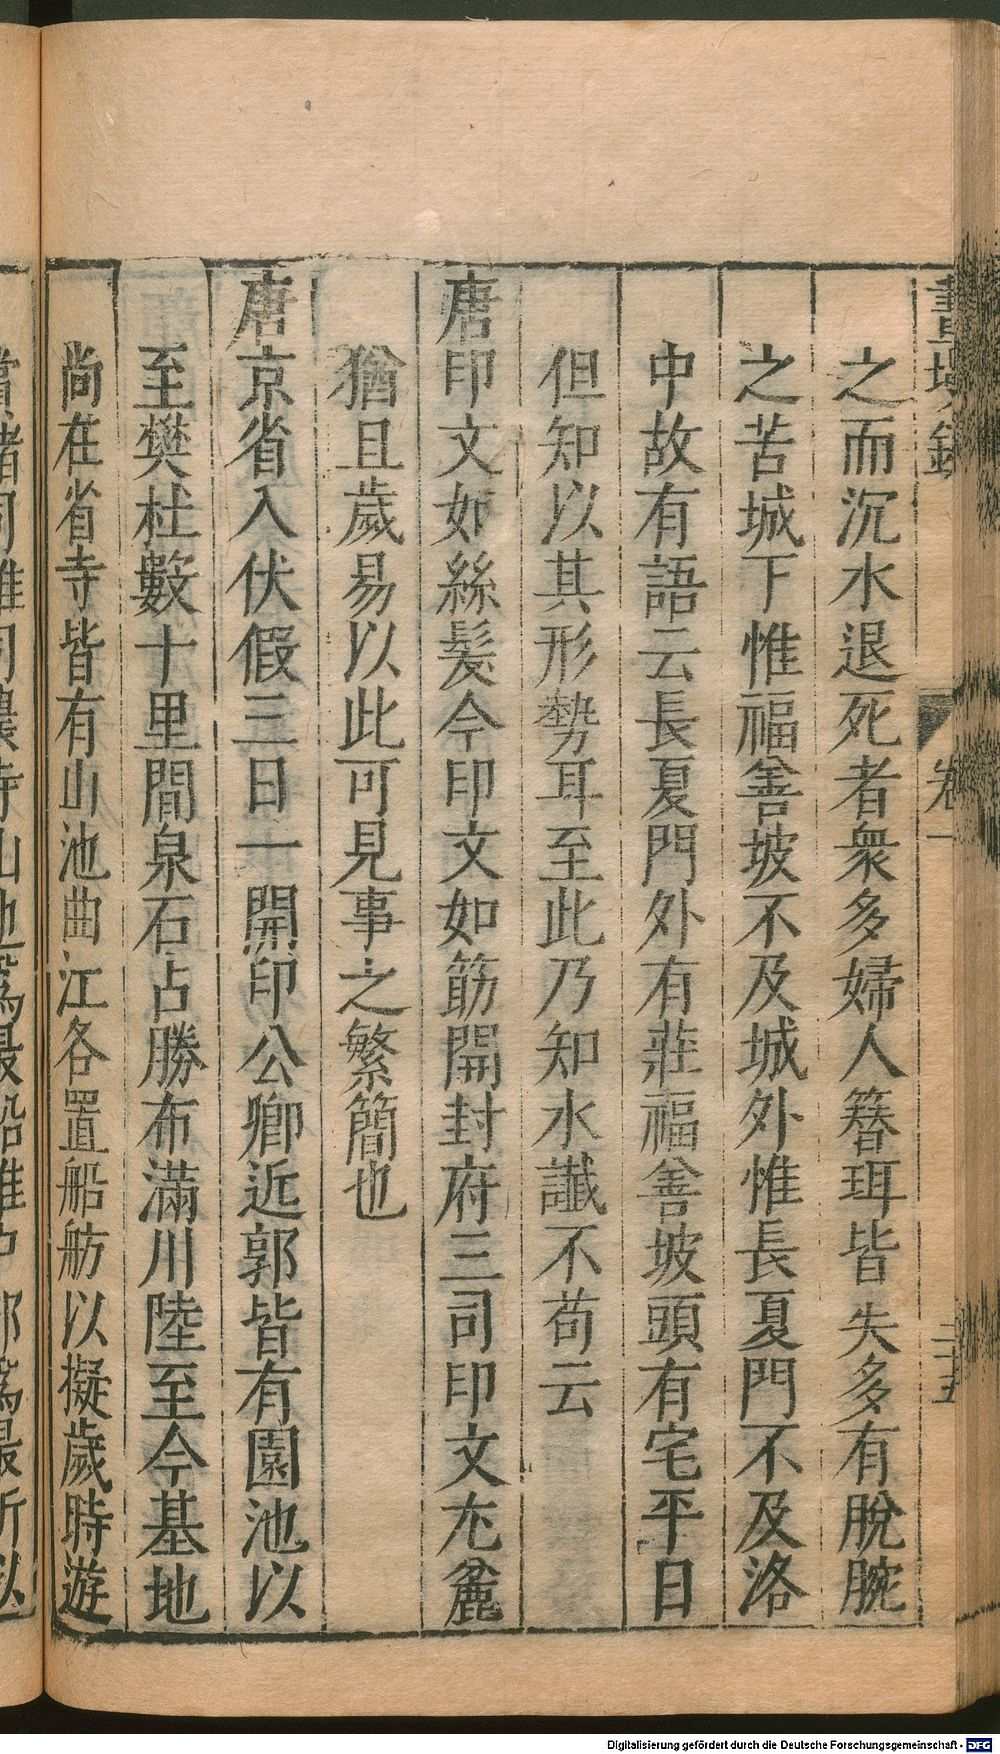 畫墁錄 卷一 二十五
之而沉水退死者衆多婦人簪珥皆失多有脫腕
之苦城下惟福善坡不及城外惟長夏門不及洛
中故有語云長夏門外有莊福善坡頭有宅平日
但知以其形勢耳至此乃知水讖不苟云
唐印文如絲髮今印文如筯開封府三司印文尢麄
猶且歲易以此可見事之繁簡也
唐京省入伏假三日一開印公卿近郭皆有園池以
至樊杜數十里間泉石占勝布滿川陸至今基地
尚在省寺皆有山池曲江各置船舫以擬歲時遊
Digitalisierung gefördert durch die Deutsche Forschungsgemeinschaft - DFG